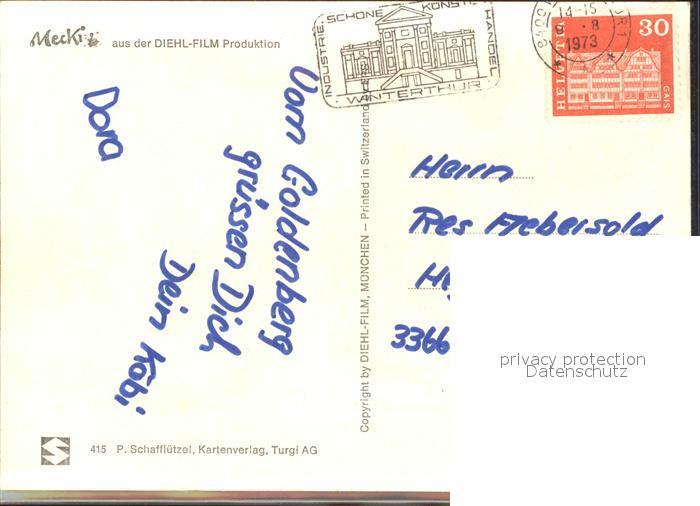 Mecki aus der DIEHL-FILM Produktion
INDUSTRIE SCHÖNE KÜNSTE HANDEL
WINTERTHUR
14-15
8
1973
HELVETIA 30
GAIS
Vom Goldenberg
grüssen Dich
Dein Köbi
Dora
Copyright by DIEHL-FILM, MÜNCHEN – Printed in Switzerland
Herrn
Res Aebersold
3366
privacy protection
Datenschutz
415 P. Schafflützel, Kartenverlag, Turgi AG